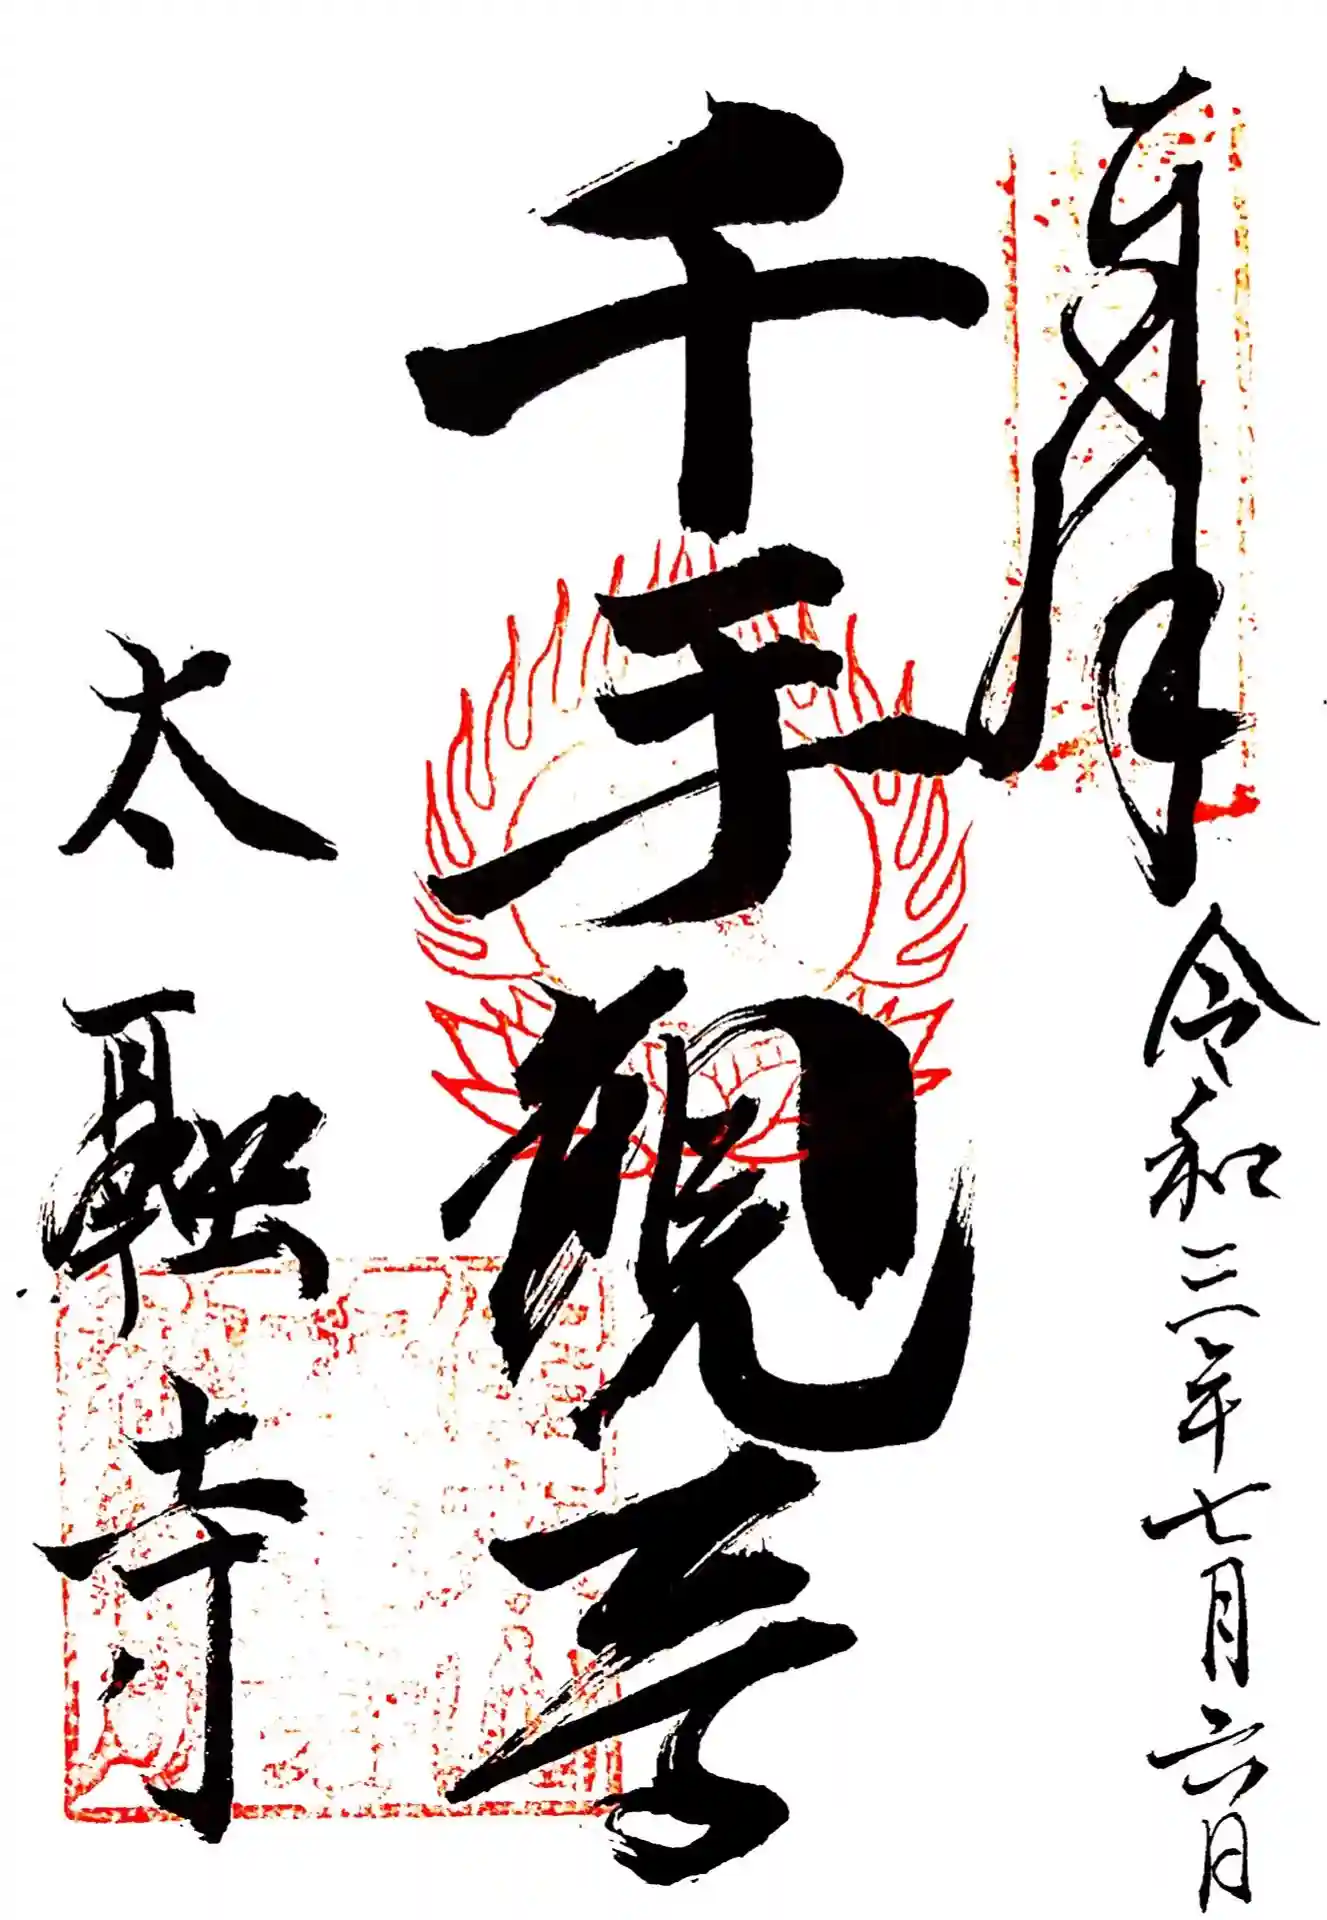 奉拝 令和三年七月六日
千手観音
太融寺